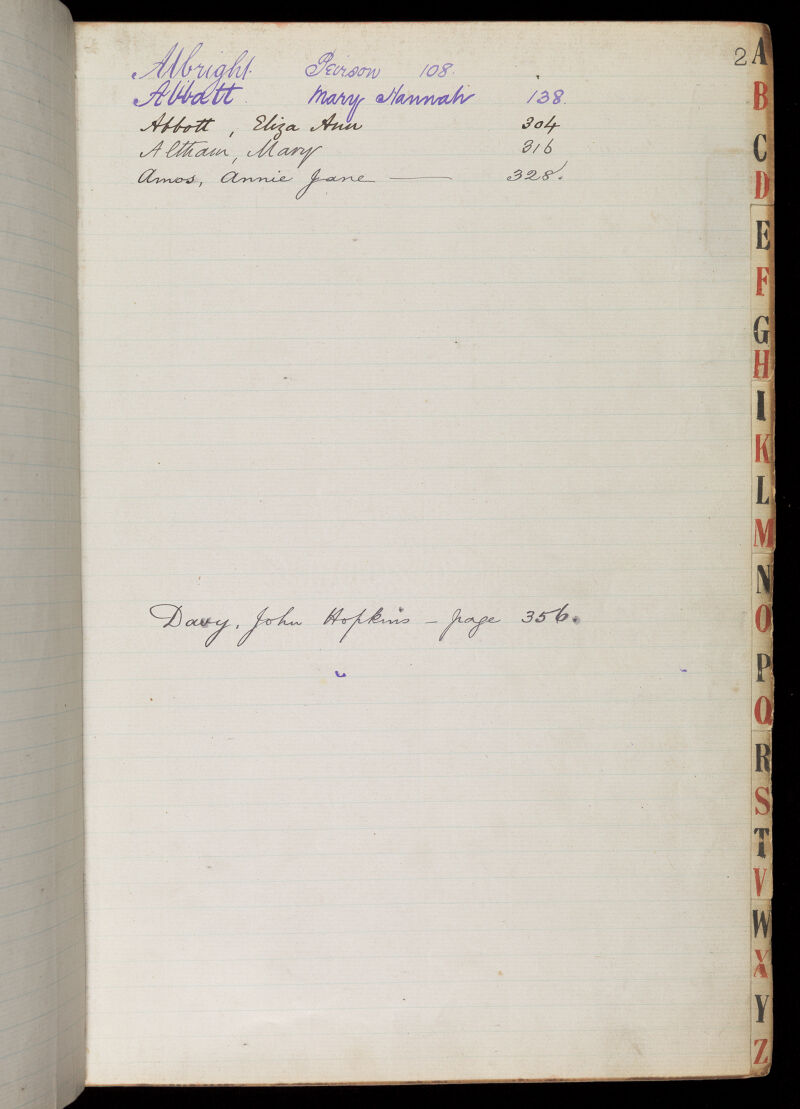 2
Albright. Peirson 108.
Abbatt. Mary Hannah 138.
Abbott, Eliza Ann 304
Altham, Mary 316
Amos, Annie Jane — 328.
Davy, John Hopkins — page 356.
A
B
C
D
E
F
G
H
I
K
L
M
N
O
P
Q
R
S
T
V
W
X
Y
Z